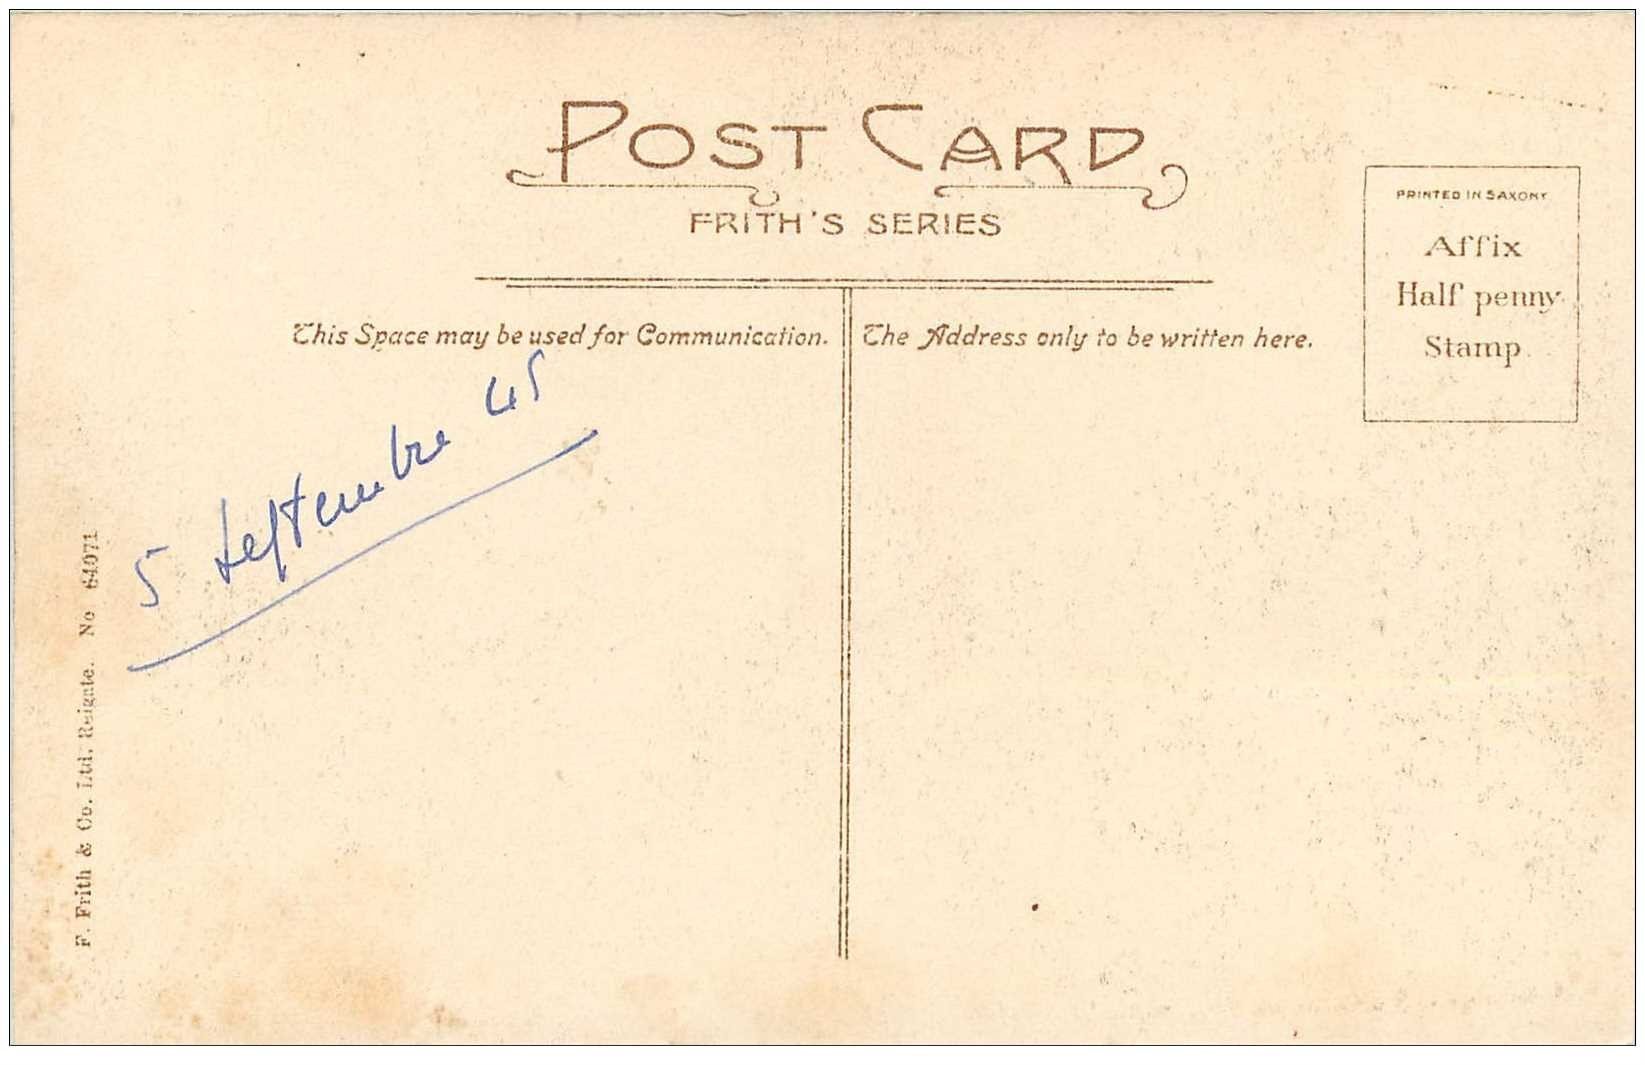 POST CARD
FRITH'S SERIES
PRINTED IN SAXONY
Affix
Half penny
Stamp.
This Space may be used for Communication.
The Address only to be written here.
5 Septembre 45
F. Frith & Co. Ltd. Reigate. No 64071